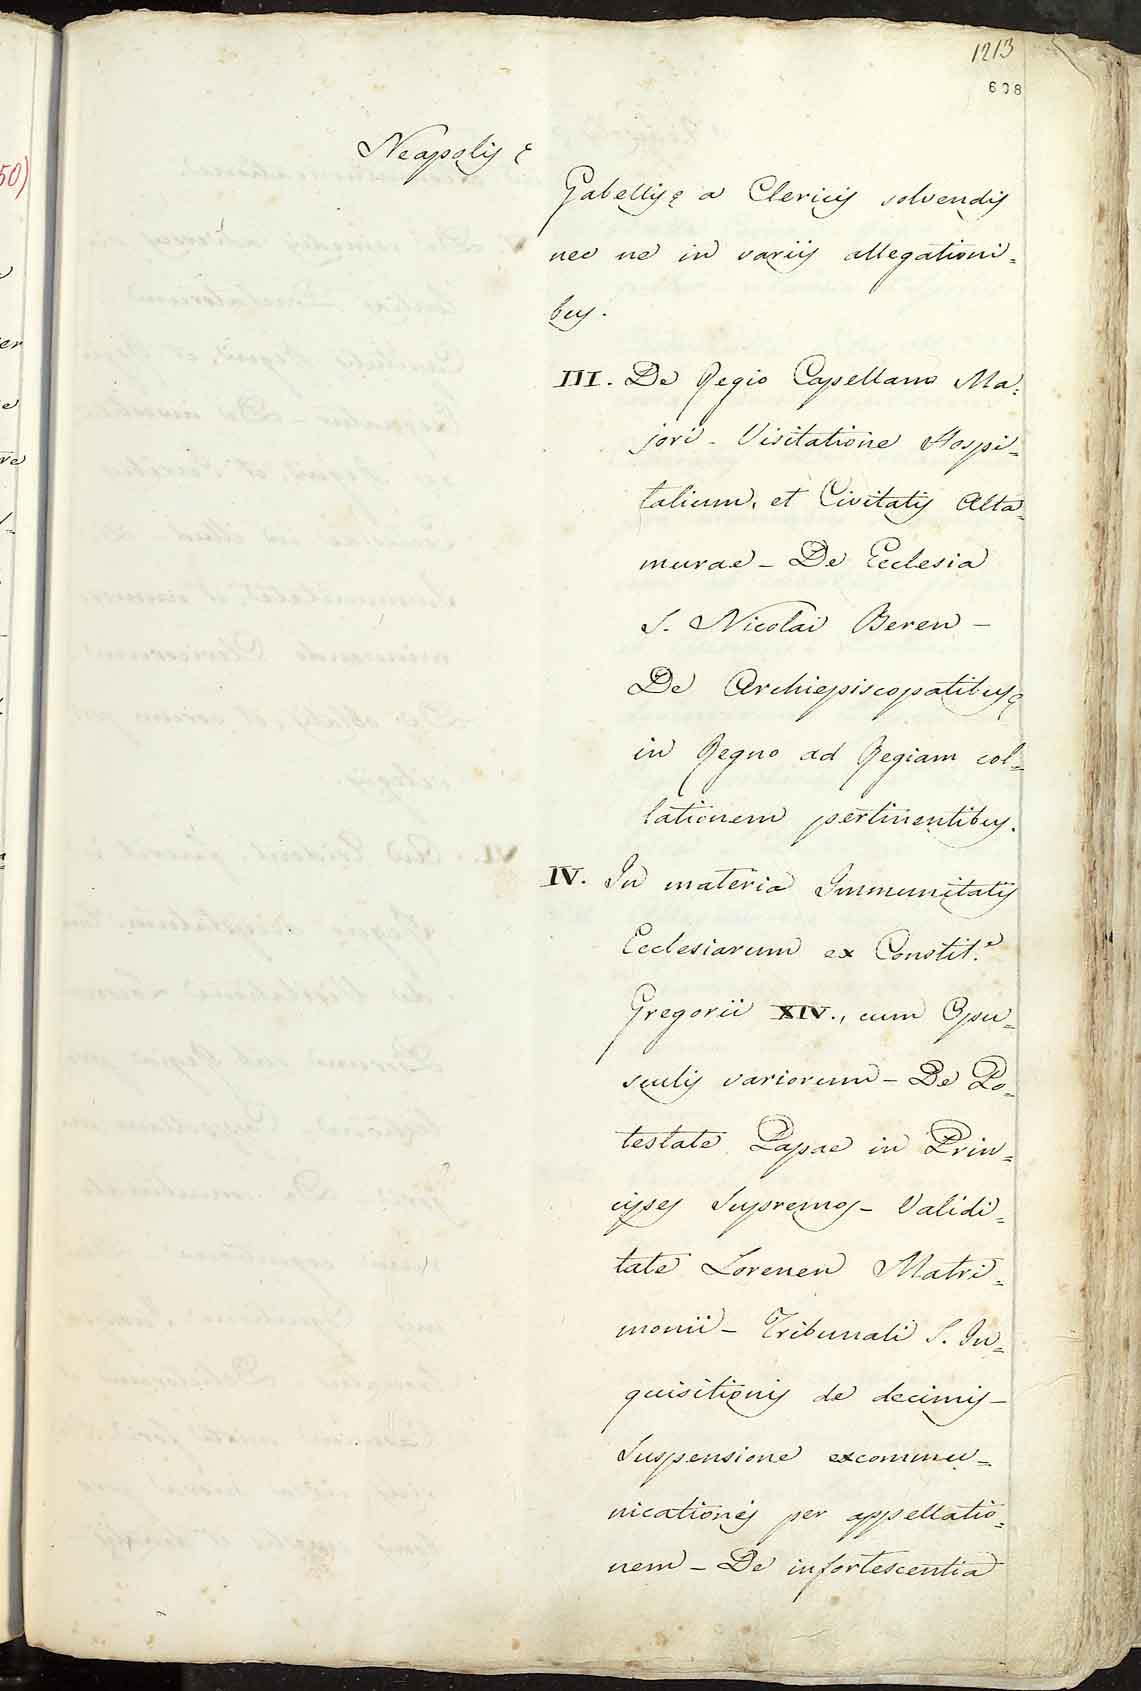 1213
608
Neapolis
Gabellis a Clericis solvendis
nec ne in variis allegationi=
bus.
III. De Regio Capellano Ma=
jori - Visitatione Hospi=
talium, et Civitatis Alta=
murae - De Ecclesia
S. Nicolai Baren -
De Archiepiscopatibus
in Regno ad Regiam col=
lationem pertinentibus.
IV. In materia Immunitatis
Ecclesiarum ex Constit.e
Gregorii XIV., cum Opu=
sculis variorum - De Po=
testate Papae in Prin=
cipes Supremos - Validi=
tate Loренen Matri=
monii - Tribunali S. In=
quisitionis de decimis -
Suspensione excommu=
nicationis per appellatio=
nem - De infortescentia
50)